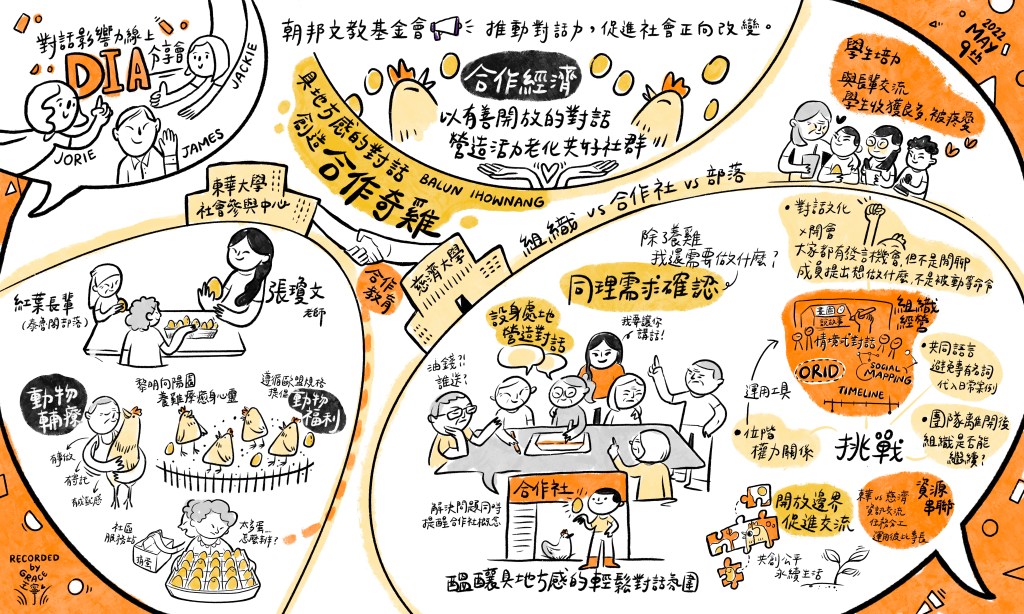 對話影響力線上
DIA分享會
JORIE
JAMES
JACKIE
朝邦文教基金會
推動對話力，促進社會正向改變。
合作經濟
以有善開放的對話
營造活力老化共好社群
具地方感的對話
創造合作奇雞
BALUN IHOWNANG
2022
MAY
9th
學生培力
與長輩交流
學生收獲良多，被疼愛
東華大學
社會參與中心
慈濟大學
合作
教育
組織 vs 合作社 vs 部落
紅葉長輩
(泰魯閣部落)
張瓊文
老師
動物
輔療
有事做
有寄託
有成就感
黎明向陽園
養雞療癒身心靈
遵循歐盟規格
提倡
動物
福利
社區
服務站
太多蛋...
怎麼辦？
除了養雞
我還需要做什麼？
同理需求確認
設身處地
營造對話
我要讓你
講話！
油錢?!
誰送？
合作社
解決問題同時
提醒合作社概念
醞釀具地方感的輕鬆對話氛圍
•對話文化
×開會
大家都有發言機會，但不是閒聊
成員提出想做什麼，不是被動等命令
組織
經營
畫圖
說故事
情境式對話
ORID
SOCIAL
MAPPING
TIMELINE
運用工具
•共同語言
避免專有名詞
代入日常案例
•位階
權力關係
挑戰
•團隊離開後
組織是否能
繼續？
開放邊界
促進交流
共創公平
永續生活
資源
串聯
東華 vs 慈濟
資訊交流
任務分工
運用彼此專長
RECORDED
by
GRACE